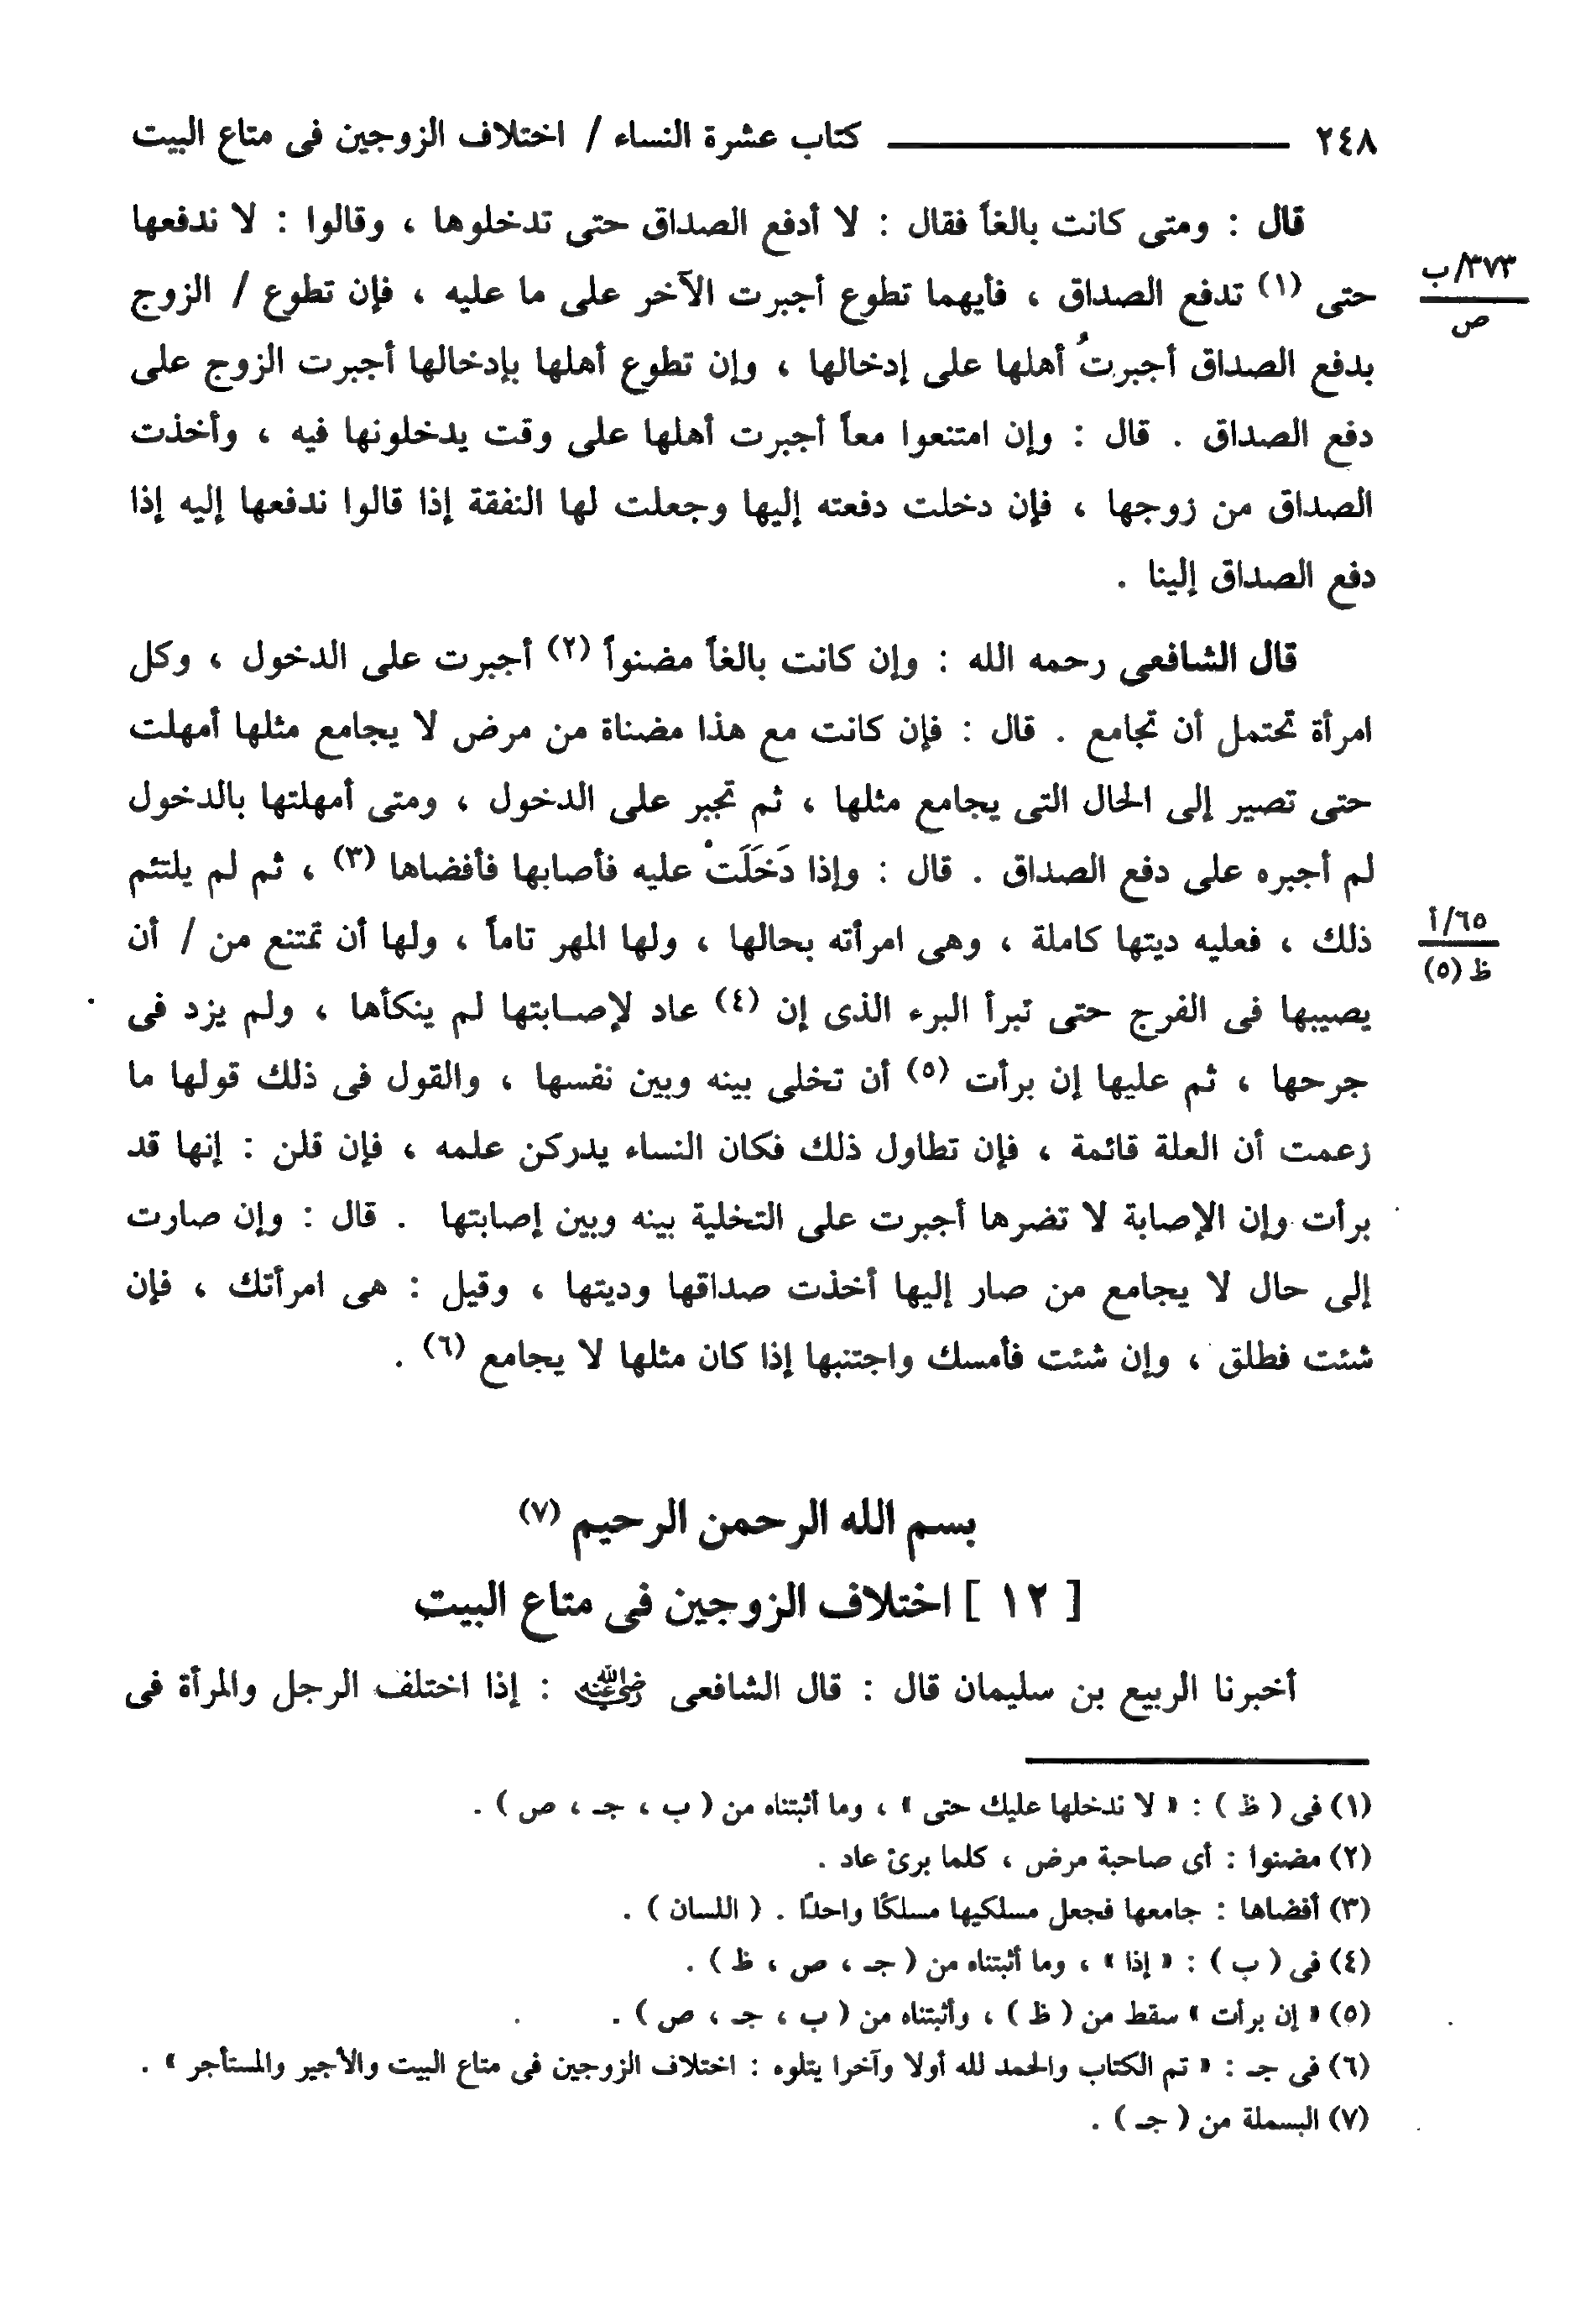 ٢٤٨ كتاب عشرة النساء / اختلاف الزوجين فى متاع البيت
قال : ومتى كانت بالغاً فقال : لا أدفع الصداق حتى تدخلوها ، وقالوا : لا ندفعها
حتى (١) تدفع الصداق ، فأيهما تطوع أجبرت الآخر على ما عليه ، فإن تطوع / الزوج
٣٧٣/ب
ص
بدفع الصداق أجبرتُ أهلها على إدخالها ، وإن تطوع أهلها بإدخالها أجبرت الزوج على
دفع الصداق . قال : وإن امتنعوا معاً أجبرت أهلها على وقت يدخلونها فيه ، وأخذت
الصداق من زوجها ، فإن دخلت دفعته إليها وجعلت لها النفقة إذا قالوا ندفعها إليه إذا
دفع الصداق إلينا .
قال الشافعى رحمه الله : وإن كانت بالغاً مضنواً (٢) أجبرت على الدخول ، وكل
امرأة تحتمل أن تجامع . قال : فإن كانت مع هذا مضناة من مرض لا يجامع مثلها أمهلت
حتى تصير إلى الحال التى يجامع مثلها ، ثم تجبر على الدخول ، ومتى أمهلتها بالدخول
لم أجبره على دفع الصداق . قال : وإذا دَخَلَتْ عليه فأصابها فأفضاها (٣) ، ثم لم يلتئم
ذلك ، فعليه ديتها كاملة ، وهى امرأته بحالها ، ولها المهر تاماً ، ولها أن تمتنع من / أن
٦٥/أ
ظ (٥)
يصيبها فى الفرج حتى تبرأ البرء الذى إن (٤) عاد لإصـابتها لم ينكأها ، ولم يزد فى
جرحها ، ثم عليها إن برأت (٥) أن تخلى بينه وبين نفسها ، والقول فى ذلك قولها ما
زعمت أن العلة قائمة ، فإن تطاول ذلك فكان النساء يدركن علمه ، فإن قلن : إنها قد
برأت وإن الإصابة لا تضرها أجبرت على التخلية بينه وبين إصابتها . قال : وإن صارت
إلى حال لا يجامع من صار إليها أخذت صداقها وديتها ، وقيل : هى امرأتك ، فإن
شئت فطلق ، وإن شئت فأمسك واجتنبها إذا كان مثلها لا يجامع (٦) .
بسم الله الرحمن الرحيم (٧)
[ ١٢ ] اختلاف الزوجين فى متاع البيت
أخبرنا الربيع بن سليمان قال : قال الشافعى رضي الله عنه : إذا اختلف الرجل والمرأة فى
(١) فى ( ظ ) : « لا ندخلها عليك حتى » ، وما أثبتناه من ( ب ، جـ ، ص ) .
(٢) مضنوا : أى صاحبة مرض ، كلما برئ عاد .
(٣) أفضاها : جامعها فجعل مسلكيها مسلكًا واحدًا . ( اللسان ) .
(٤) فى ( ب ) : « إذا » ، وما أثبتناه من ( جـ ، ص ، ظ ) .
(٥) « إن برأت » سقط من ( ظ ) ، وأثبتناه من ( ب ، جـ ، ص ) .
(٦) فى جـ : « تم الكتاب والحمد لله أولا وآخرا يتلوه : اختلاف الزوجين فى متاع البيت والأجير والمستأجر » .
(٧) البسملة من ( جـ ) .